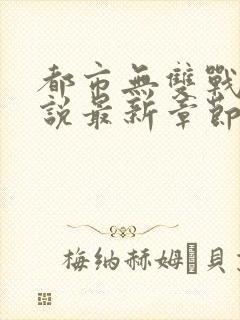 都市無雙戰
說最新章節
梅纳赫姆�貝